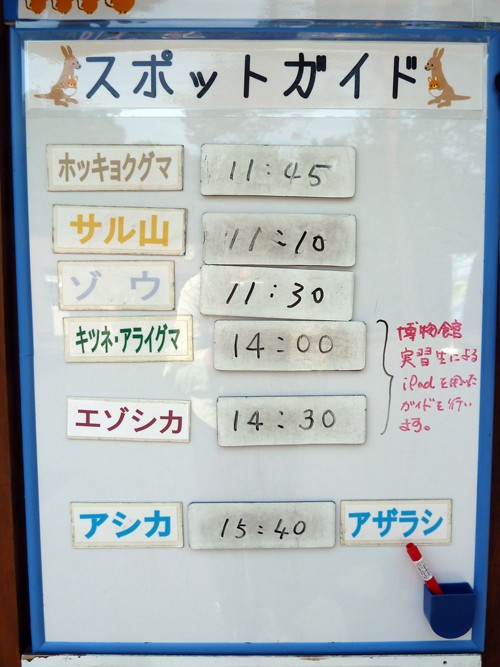 スポットガイド
ホッキョクグマ 11:45
サル山 11:10
ゾウ 11:30
キツネ・アライグマ 14:00
エゾシカ 14:30
博物館
実習生による
iPadを用いた
ガイドを行い
ます。
アシカ 15:40 アザラシ